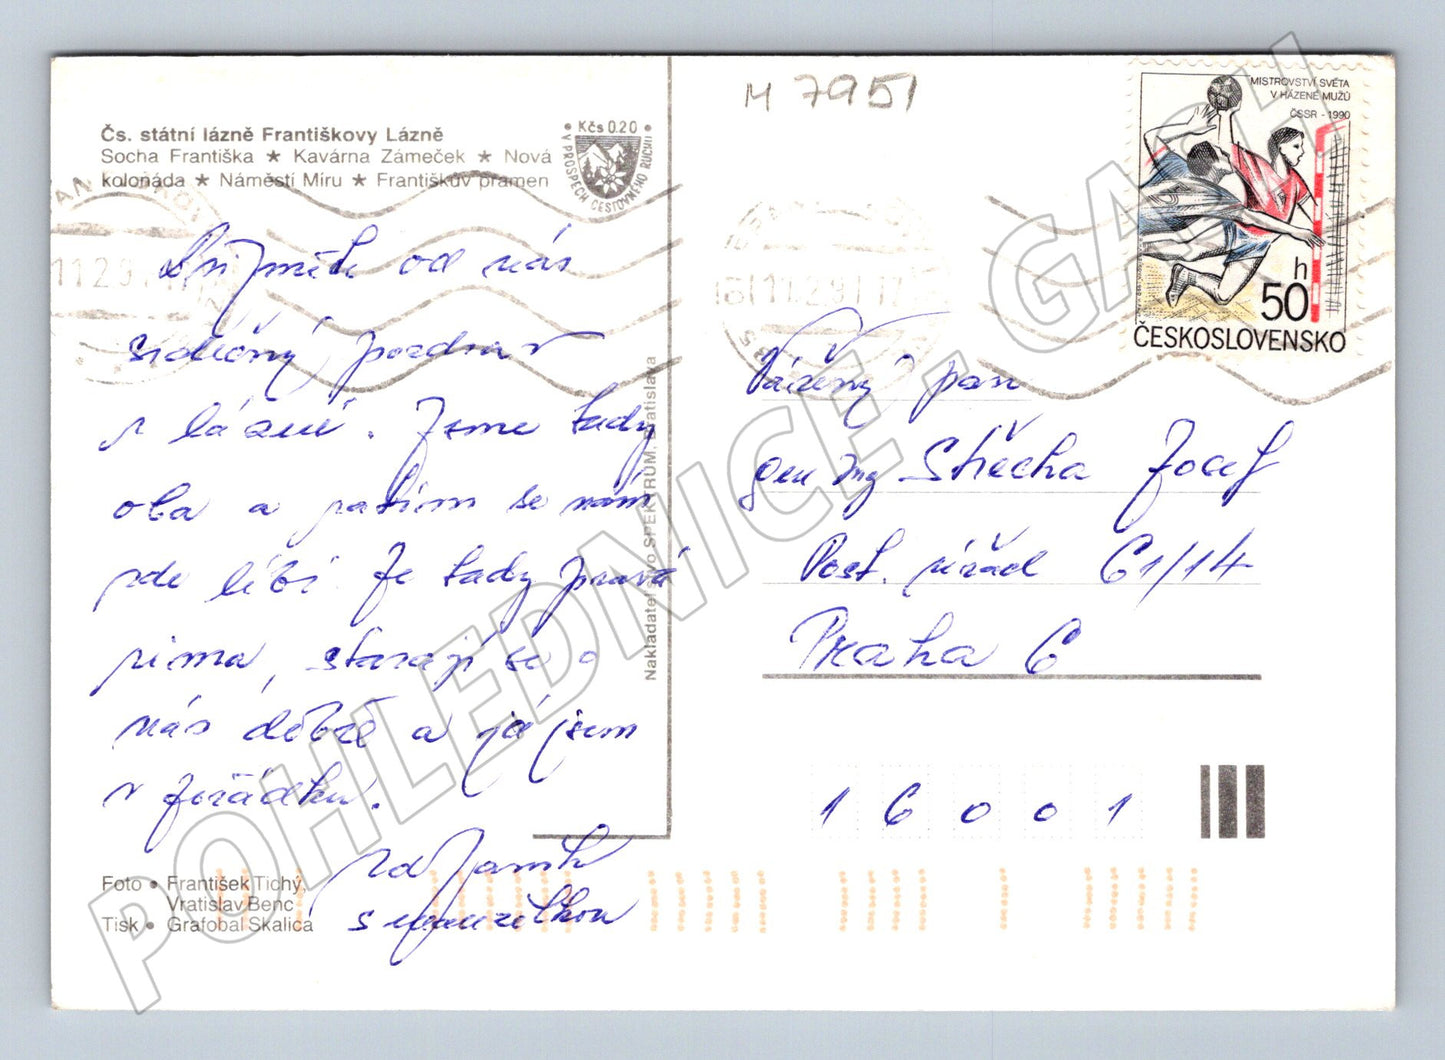 Čs. státní lázně Františkovy Lázně
Socha Františka ★ Kavárna Zámeček ★ Nová
kolonáda ★ Náměstí Míru ★ Františkův pramen
• Kčs 0.20 •
V PROSPĚCH CESTOVNÉHO RUCHU
Přijměte od nás
srdečný pozdrav
z lázně. Jsme tady
oba a zatím se nám
zde líbí. Je tady
prima, starají se o
nás dobře a já jsem
v pořádku.
s manželkou
Foto • František Tichý,
Vratislav Benc
Tisk • Grafobal Skalica
Nakladatelstvo SPEKTRUM, Bratislava
M 7951
MISTROVSTVÍ SVĚTA
V HÁZENÉ MUŽŮ
ČSSR - 1990
h
50
ČESKOSLOVENSKO
11.2.91
11.2.91
Vážený pan
gen Ing Střecha Josef
Post. úřad 61/14
Praha 6
16001
POHLEDNICE - GASH